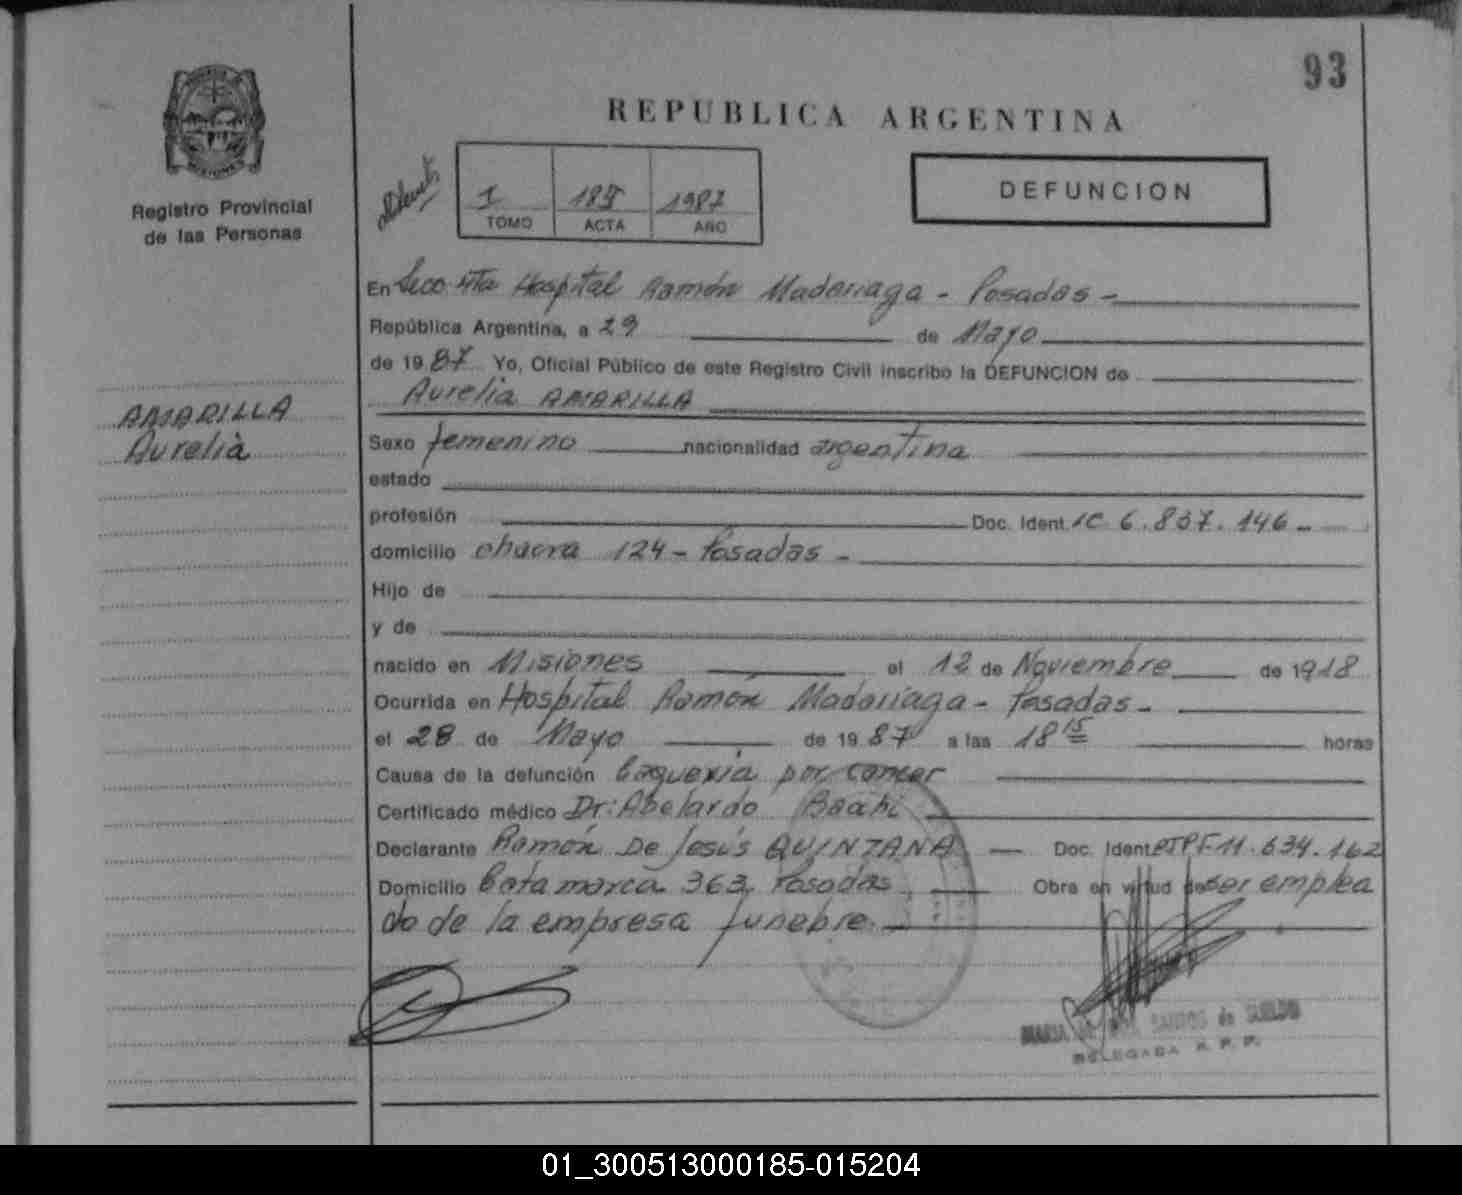 93
REPUBLICA ARGENTINA
PROVINCIA DE MISIONES
Registro Provincial
de las Personas
I 1987
TOMO ACTA AÑO
DEFUNCION
En Secc 4Ta Hospital Ramón Madariaga - Posadas -
República Argentina, a 29 de Mayo
de 1987 Yo, Oficial Público de este Registro Civil inscribo la DEFUNCION de
Aurelia AMARILLA
AMARILLA
Aurelia
Sexo femenino nacionalidad argentina
estado
profesión Doc. Ident. 6.837.146 -
domicilio chacra 124 - Posadas -
Hijo de
y de
nacido en Misiones el 12 de Noviembre de 1918
Ocurrida en Hospital Ramón Madariaga - Posadas -
el 28 de Mayo de 1987 a las 18 15 horas
Causa de la defunción Caquexia por cancer
Certificado médico Dr: Abelardo
Declarante Ramón De Jesús QUINTANA — Doc. Ident 11.634.162
Domicilio Catamarca 363, Posadas Obra en virtud de ser emplea
do de la empresa funebre. -
MARIA SANTOS de
DELEGADA R. P. P.
01_300513000185-015204